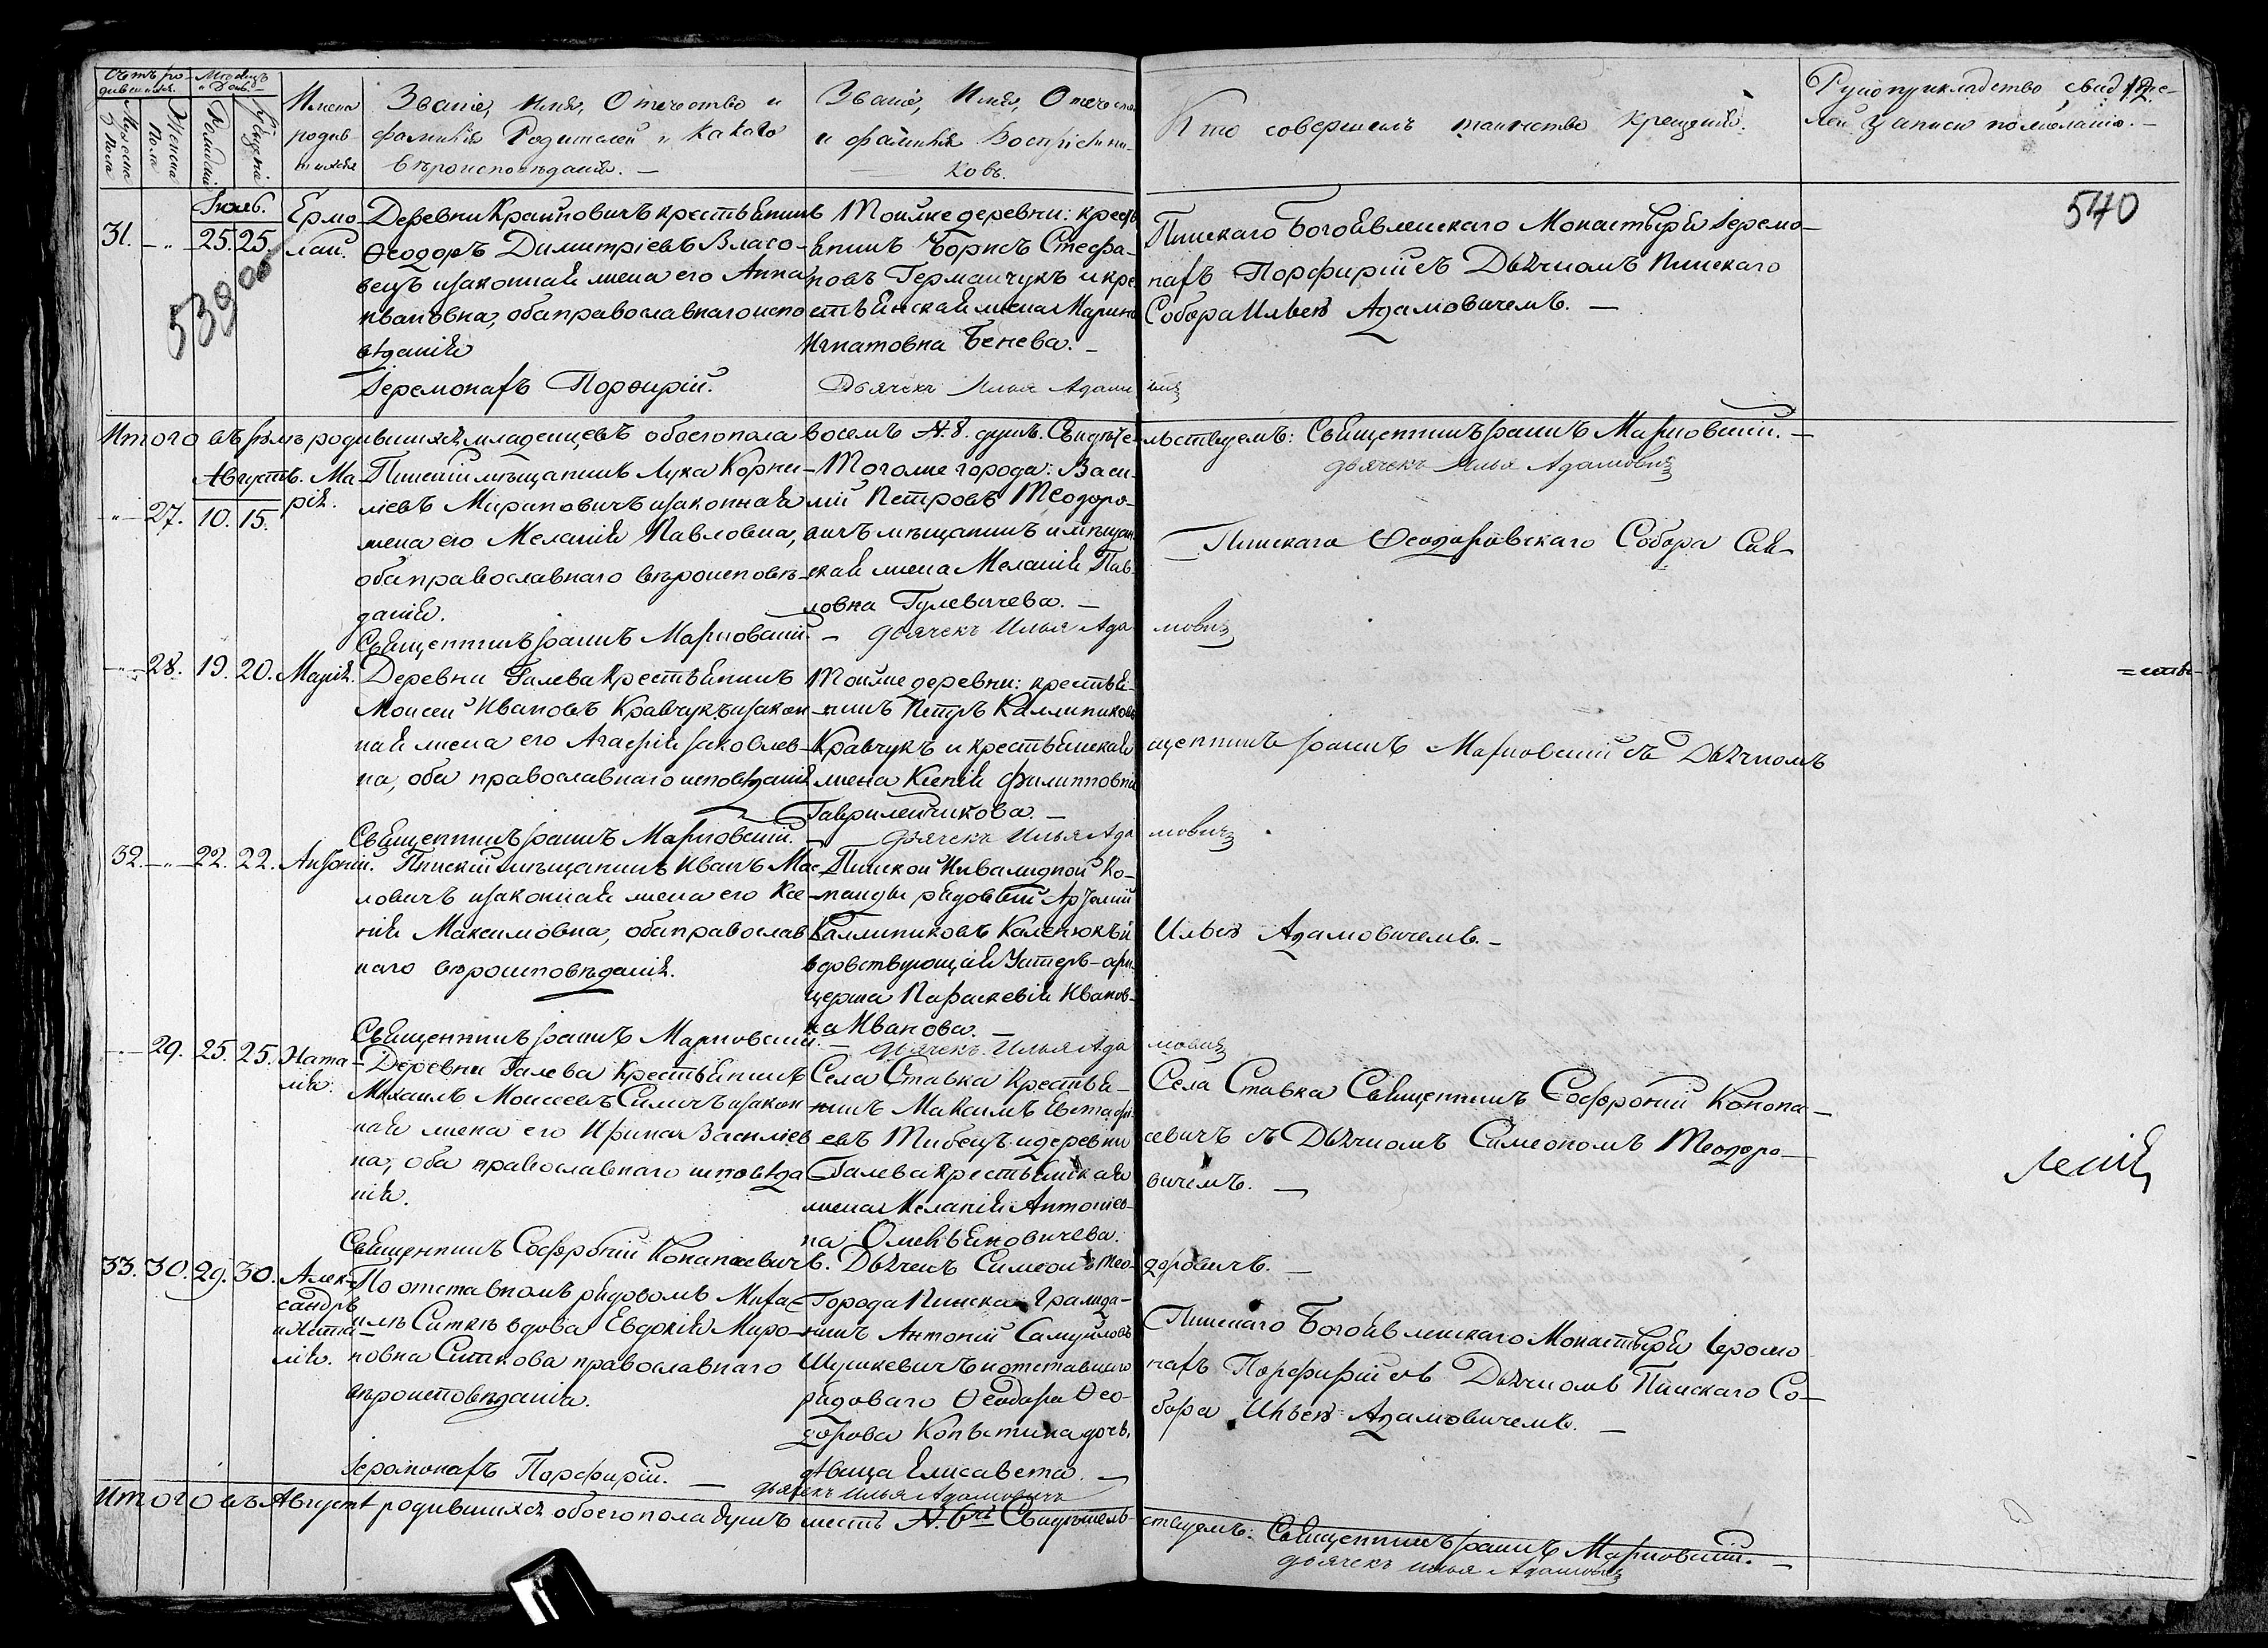 Счетъ ро-
дившихся.
Мѣсяцъ
и День.
Мужеска
пола
Женска
пола
Рожденія
Крещенія
Имена
родив-
шихся
Званіе, Имя, Отечество и
фамилія Родителей и какого
вѣроисповѣданія. —
Званіе, Имя, Отечество
и фамилія Воспріемни-
ковъ.
Кто совершалъ таинство крещенія.
Рукоприкладство свидѣте-
лей записи по желанію. —
540
539 об
Іюль.
31. — „ — 25. 25.
Ермо-
лай.
Деревни Крайновичъ крестьянинъ
Ѳеодоръ Димитріевъ Власо-
вецъ и законная жена его Анна
Ивановна, оба православнаго испо
вѣданія
Іеромонахъ Порфирій.
Тоийже деревни: кресть
янинъ Борисъ Стефа-
новъ Германчукъ и кре
стьянская жена Марина
Игнатовна Бенева. —
Дьячекъ Илья Адамо вичъ
Пинскаго Богоявленскаго Монастыря Іеромо-
нахъ Порфирій съ Дьячкомъ Пинскаго
Собора Ильею Адамовичемъ. —
Итого въ родившихся младенцевъ обоего пола восемъ №. 8. душъ. Свидѣте-льствуемъ: Священникъ Іоаннъ Марковскій. —
дьячекъ Илья Адамовичъ
Августъ.
„ — 27. 10. 15.
Ма-
рія.
Пинскій мѣщанинъ Лука Корни-
ліевъ Мириновичъ и законная
жена его Меланія Павловна,
оба православнаго вѣроисповѣ-
данія.
Священникъ Іоаннъ Марковскій. —
Тогоже города: Васи-
лій Петровъ Теодоро-
вичъ мѣщанинъ и мѣщан
ская жена Меланія Пав-
ловна Гулевичева. —
дьячекъ Илья Ада мовичъ
Пинскаго Ѳеодоровскаго Собора Свя-
— „ — 28. 19. 20. Марія.
Деревни Галева Крестьянинъ
Моисей Ивановъ Кравчукъ и закон
ная жена его Агафія Іаковлев-
на, оба православнаго исповѣданія
Священникъ Іоаннъ Марковскій. —
Тоийже деревни: крестья-
нинъ Петръ Каллиниковъ
Кравчукъ и крестьянская
жена Ксенія Филипповна
Гаврилейчикова. —
дьячекъ Илья Ада мовичъ
щенникъ Іоаннъ Марковскій съ Дьячкомъ
32. — „ — 22. 22. Антоній.
Пинскій мѣщанинъ Иванъ Мас-
ловичъ и законная жена его Ксе-
нія Максимовна, оба православ
наго вѣроисповѣданія.
Священникъ Іоаннъ Марковскій. —
Пинской Инвалидной Ко-
манды рядовый
Каллиниковъ Каленюкъ и
вдовствующая Унтеръ-офи-
церша Параскевія Иванов-
на Иванова. —
дьячекъ Илья Ада мовичъ
Ильею Адамовичемъ. —
— „ — 29. 25. 25.
Ната-
лія.
Деревни Галева Крестьянинъ
Михаилъ Моисеевъ Симичъ и закон
ная жена его Ирина Василіев
на, оба православнаго исповѣда
нія.
Священникъ Софроній Конопасевичъ.
Села Ставка Крестья-
нинъ Максимъ Евстафі-
евъ Тибецъ и деревни
Галева крестьянская
жена Меланія Антоніев-
на Омельяновичева.
Дьячекъ Симеонъ Тео доровичъ. —
Села Ставка Священникъ Софроній Конопа-
севичъ съ Дьячкомъ Симеономъ Теодоро-
вичемъ. —
33. 30. 29. 30.
Алек-
сандръ
и Ната-
лія.
По отставномъ рядовомъ Миха-
илѣ Ситкѣ вдова Евдокія Миро-
новна Ситкова православнаго
вѣроисповѣданія.
Іеромонахъ Порфирій. —
Города Пинска Гражда-
нинъ Антоній Самуиловъ
Шушкевичъ и отставнаго
рядоваго Ѳеодора Ѳео-
дорова Копытина дочь,
дѣвица Елисавета. —
дьячекъ Илья Адамовичъ
Пинскаго Богоявленскаго Монастыря Іеромо
нахъ Порфирій съ Дьячкомъ Пинскаго Со-
бора Ильею Адамовичемъ. —
Итого въ Августѣ родившихся обоего пола душъ шесть №. 6. Свидѣтель-ствуемъ: Священникъ Іоаннъ Марковскій. —
дьячекъ Илья Адамовичъ